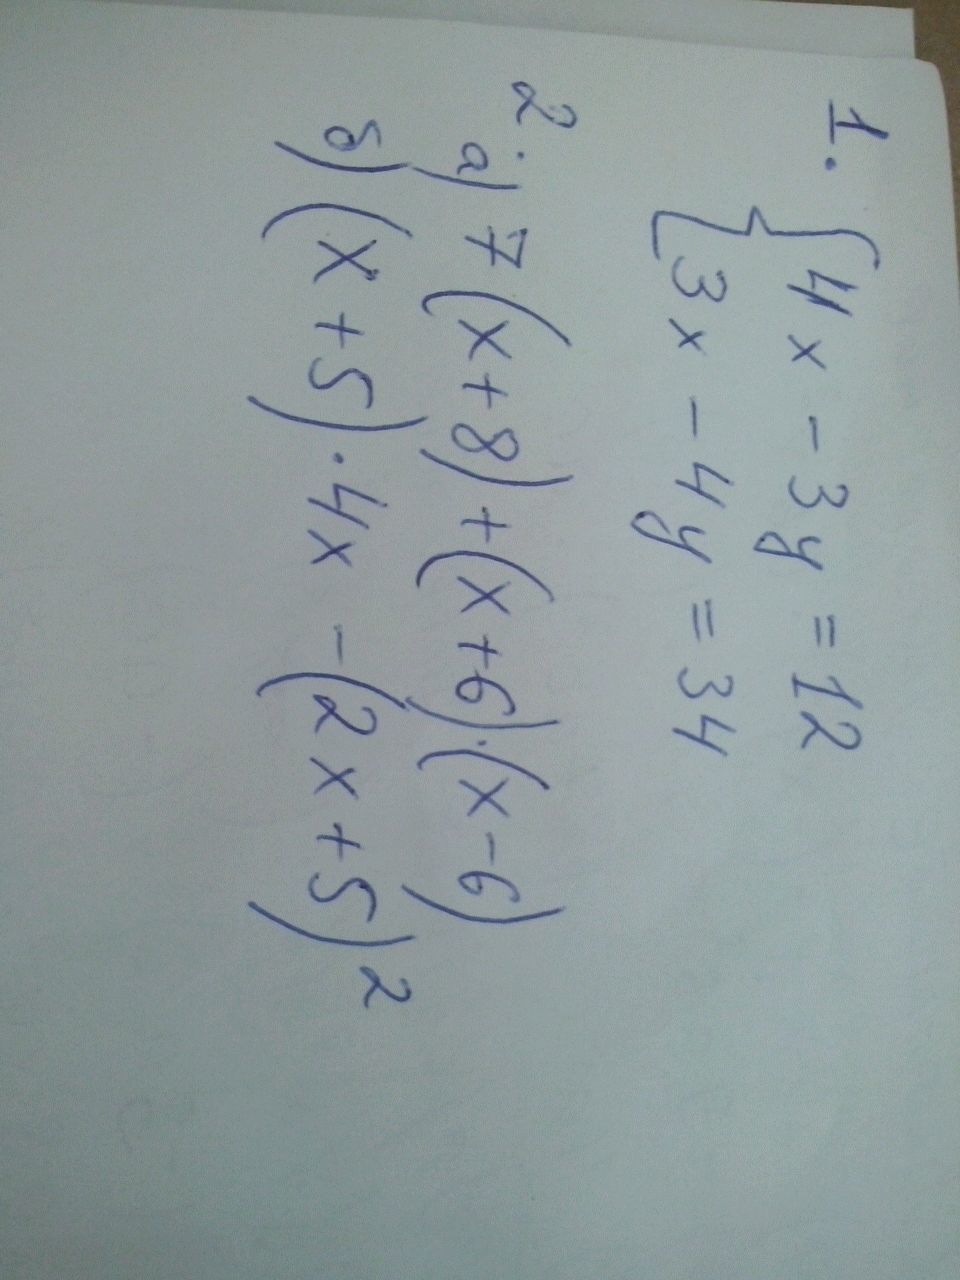 1. { 4x - 3y = 12
3x - 4y = 34
2. а) 7(x+8)+(x+6)·(x-6)
б) (x+5)·4x - (2x+5)²